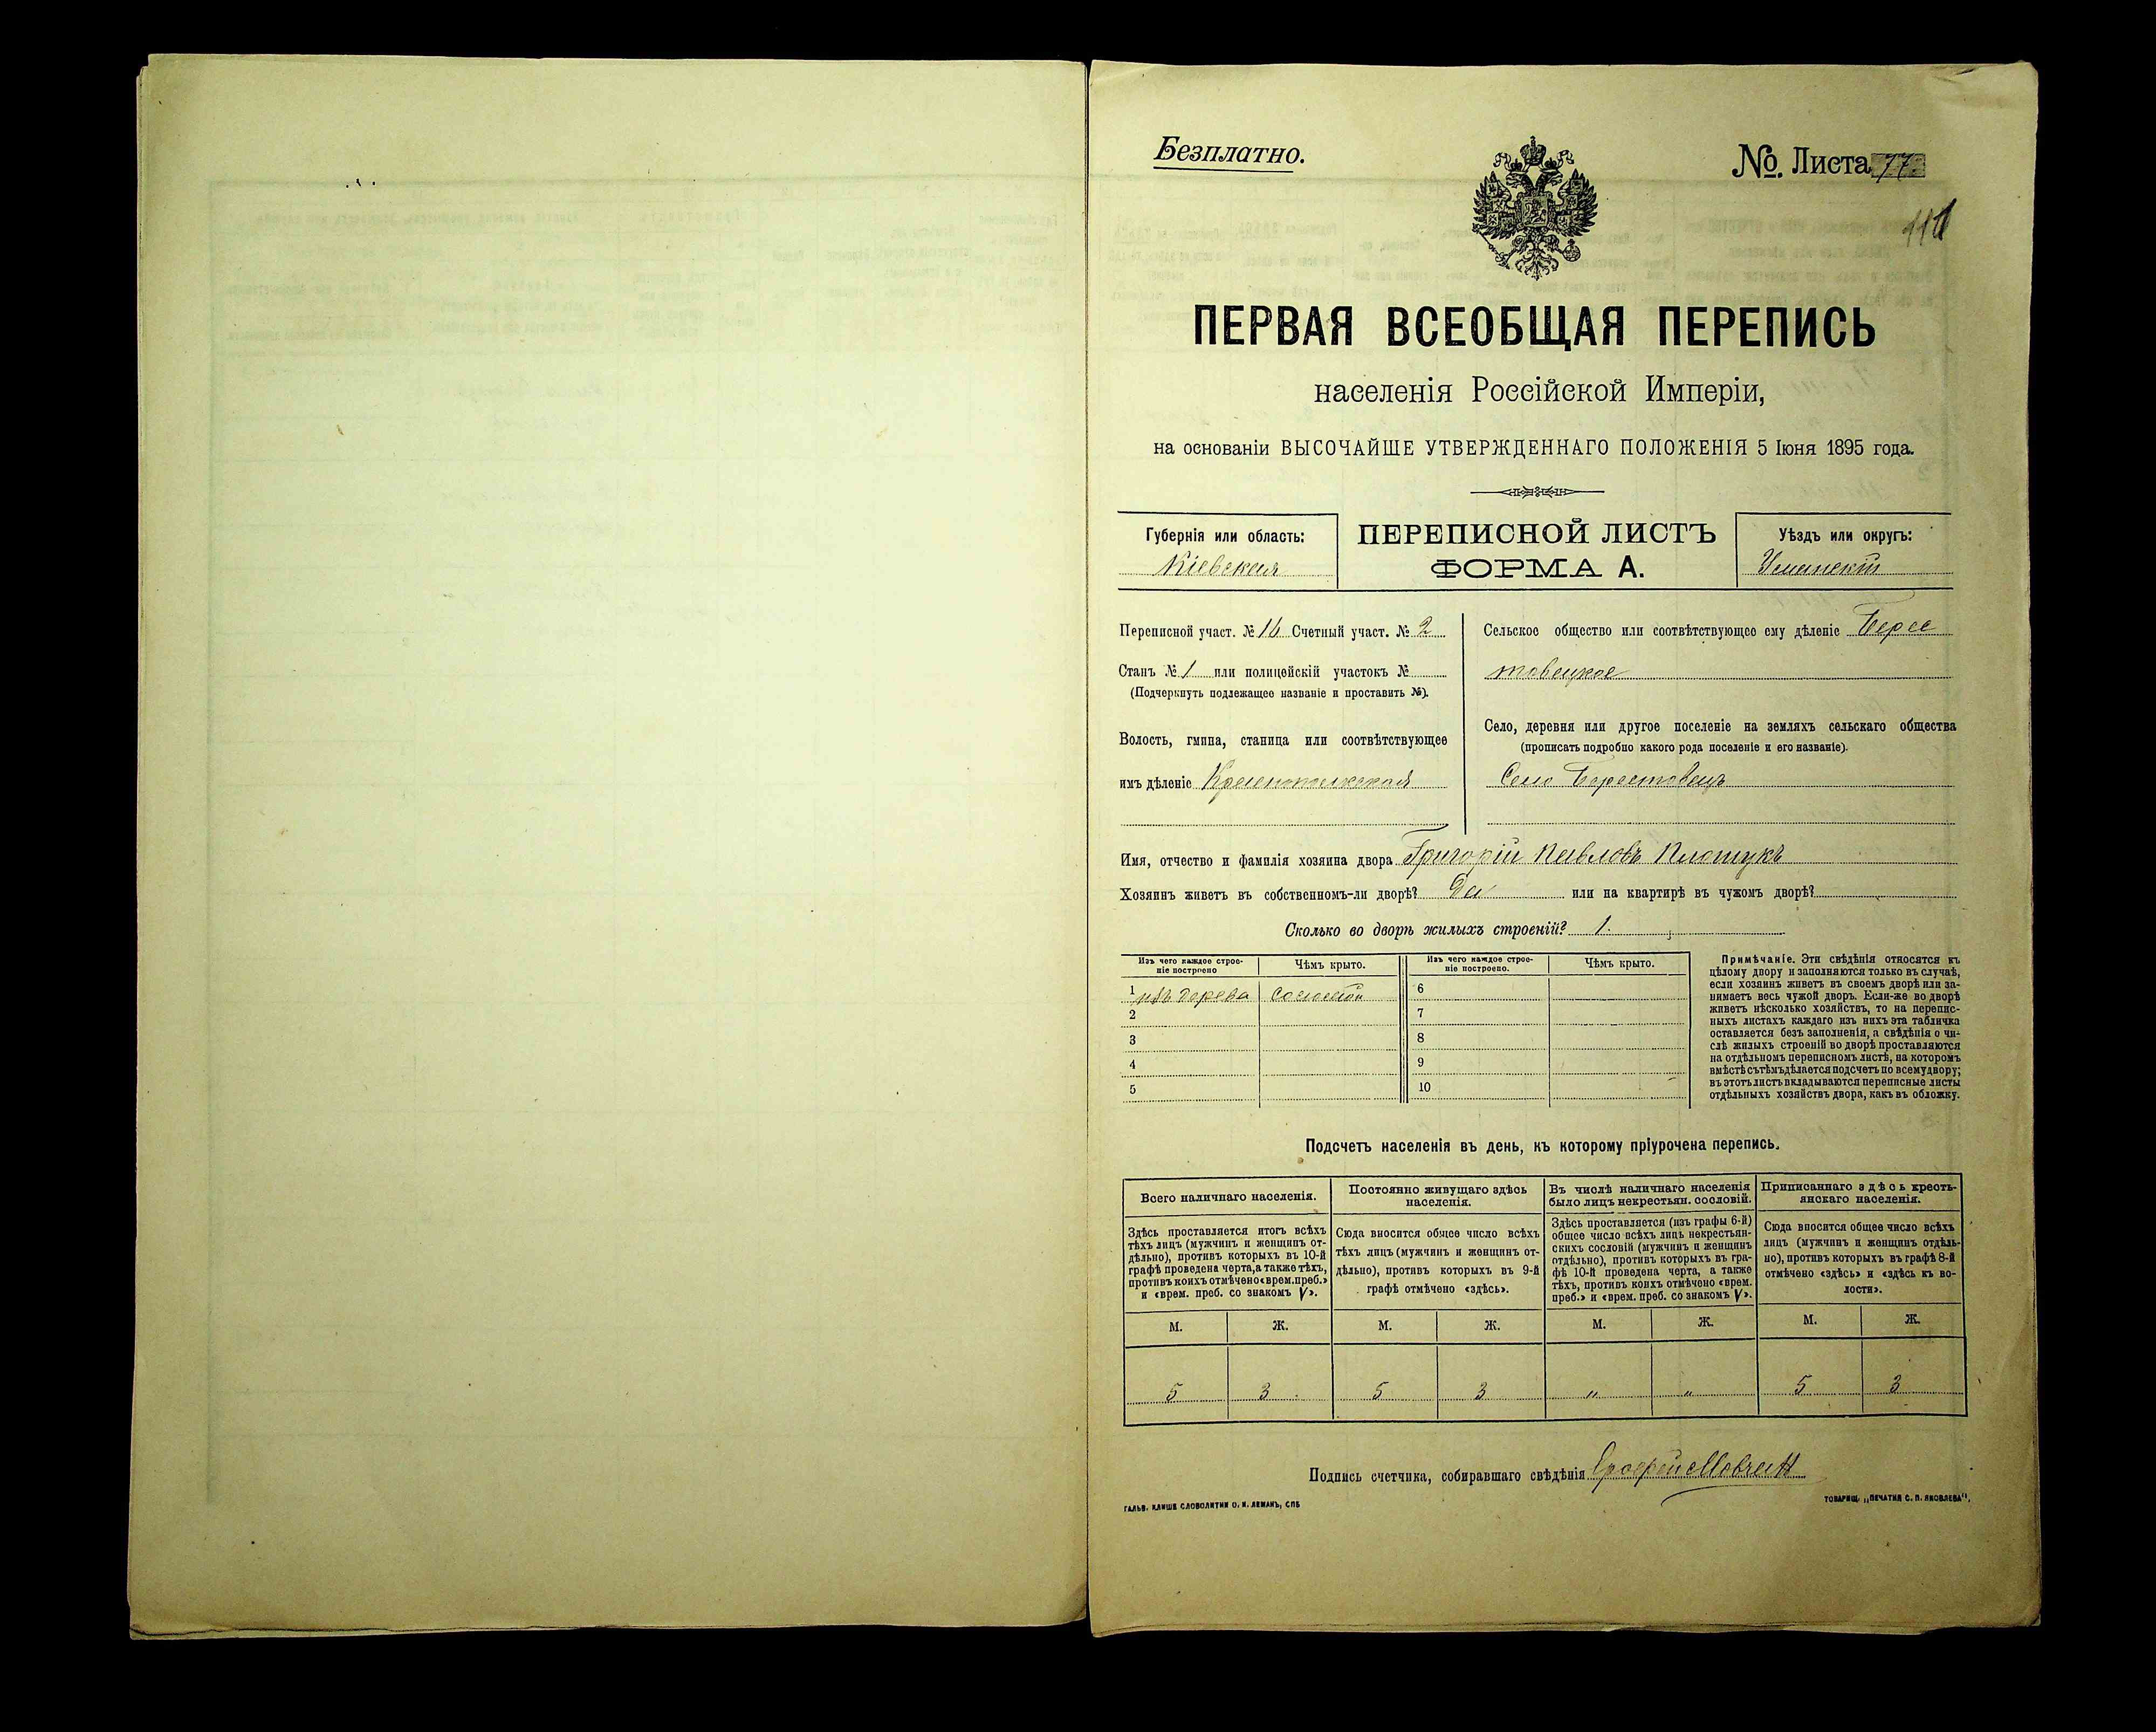 Безплатно.
№. Листа 77.
111
ПЕРВАЯ ВСЕОБЩАЯ ПЕРЕПИСЬ
населенія Россійской Имперіи,
на основаніи ВЫСОЧАЙШЕ УТВЕРЖДЕННАГО ПОЛОЖЕНІЯ 5 Іюня 1895 года.
Губернія или область:
Кіевская
ПЕРЕПИСНОЙ ЛИСТЪ
ФОРМА А.
Уѣздъ или округъ:
Уманскій
Переписной участ. № 16 Счетный участ. № 2
Станъ № 1 или полицейскій участокъ №
(Подчеркнуть подлежащее названіе и проставить №).
Волость, гмина, станица или соотвѣтствующее
имъ дѣленіе
Сельское общество или соотвѣтствующее ему дѣленіе Берес
товецкое
Село, деревня или другое поселеніе на земляхъ сельскаго общества
(прописать подробно какого рода поселеніе и его названіе).
Село Берестовецъ
Имя, отчество и фамилія хозяина двора Григорій Павловъ
Хозяинъ живетъ въ собственномъ-ли дворѣ? Да или на квартирѣ въ чужомъ дворѣ?
Сколько во дворѣ жилыхъ строеній? 1.
Изъ чего каждое строе-
ніе построено
Чѣмъ крыто.
Изъ чего каждое строе-
ніе построено.
Чѣмъ крыто.
1 изъ дерева соломой
2
3
4
5
6
7
8
9
10
Примѣчаніе. Эти свѣдѣнія относятся къ
цѣлому двору и заполняются только въ случаѣ,
если хозяинъ живетъ въ своемъ дворѣ или за-
нимаетъ весь чужой дворъ. Если-же во дворѣ
живетъ нѣсколько хозяйствъ, то на перепис-
ныхъ листахъ каждаго изъ нихъ эта табличка
оставляется безъ заполненія, а свѣдѣнія о чи-
слѣ жилыхъ строеній во дворѣ проставляются
на отдѣльномъ переписномъ листѣ, на которомъ
вмѣстѣ съ тѣмъ дѣлается подсчетъ по всему двору;
въ этотъ листъ вкладываются переписные листы
отдѣльныхъ хозяйствъ двора, какъ въ обложку.
Подсчетъ населенія въ день, къ которому пріурочена перепись.
Всего наличнаго населенія.
Здѣсь проставляется итогъ всѣхъ
тѣхъ лицъ (мужчинъ и женщинъ от-
дѣльно), противъ которыхъ въ 10-й
графѣ проведена черта, а также тѣхъ,
противъ коихъ отмѣчено «врем. преб.»
и «врем. преб. со знакомъ V».
Постоянно живущаго здѣсь
населенія.
Сюда вносится общее число всѣхъ
тѣхъ лицъ (мужчинъ и женщинъ от-
дѣльно), противъ которыхъ въ 9-й
графѣ отмѣчено «здѣсь».
Въ числѣ наличнаго населенія
было лицъ некрестьян. сословій.
Здѣсь проставляется (изъ графы 6-й)
общее число всѣхъ лицъ некрестьян-
скихъ сословій (мужчинъ и женщинъ
отдѣльно), противъ которыхъ въ гра-
фѣ 10-й проведена черта, а также
тѣхъ, противъ коихъ отмѣчено «врем.
преб.» и «врем. преб. со знакомъ V».
Приписаннаго здѣсь кресть-
янскаго населенія.
Сюда вносится общее число всѣхъ
лицъ (мужчинъ и женщинъ отдѣль-
но), противъ которыхъ въ графѣ 8-й
отмѣчено «здѣсь» и «здѣсь къ во-
лости».
М. Ж. М. Ж. М. Ж. М. Ж.
5 3 5 3 „ „ 5 3
Подпись счетчика, собиравшаго свѣдѣнія
ГАЛЬВ. КЛИШЕ СЛОВОЛИТНИ О. И. ЛЕМАНЪ, СПБ
ТОВАРИЩ. „ПЕЧАТНЯ С. П. ЯКОВЛЕВА“.